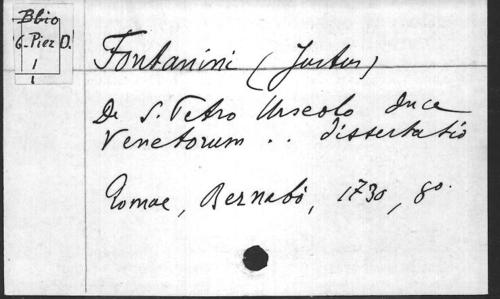 Bbio
G-Pier D.
1
1
Fontanini (Justus)
De S. Petro Urseolo Duce
Venetorum .. dissertatio
Romae, Bernabò, 1730, 8o.